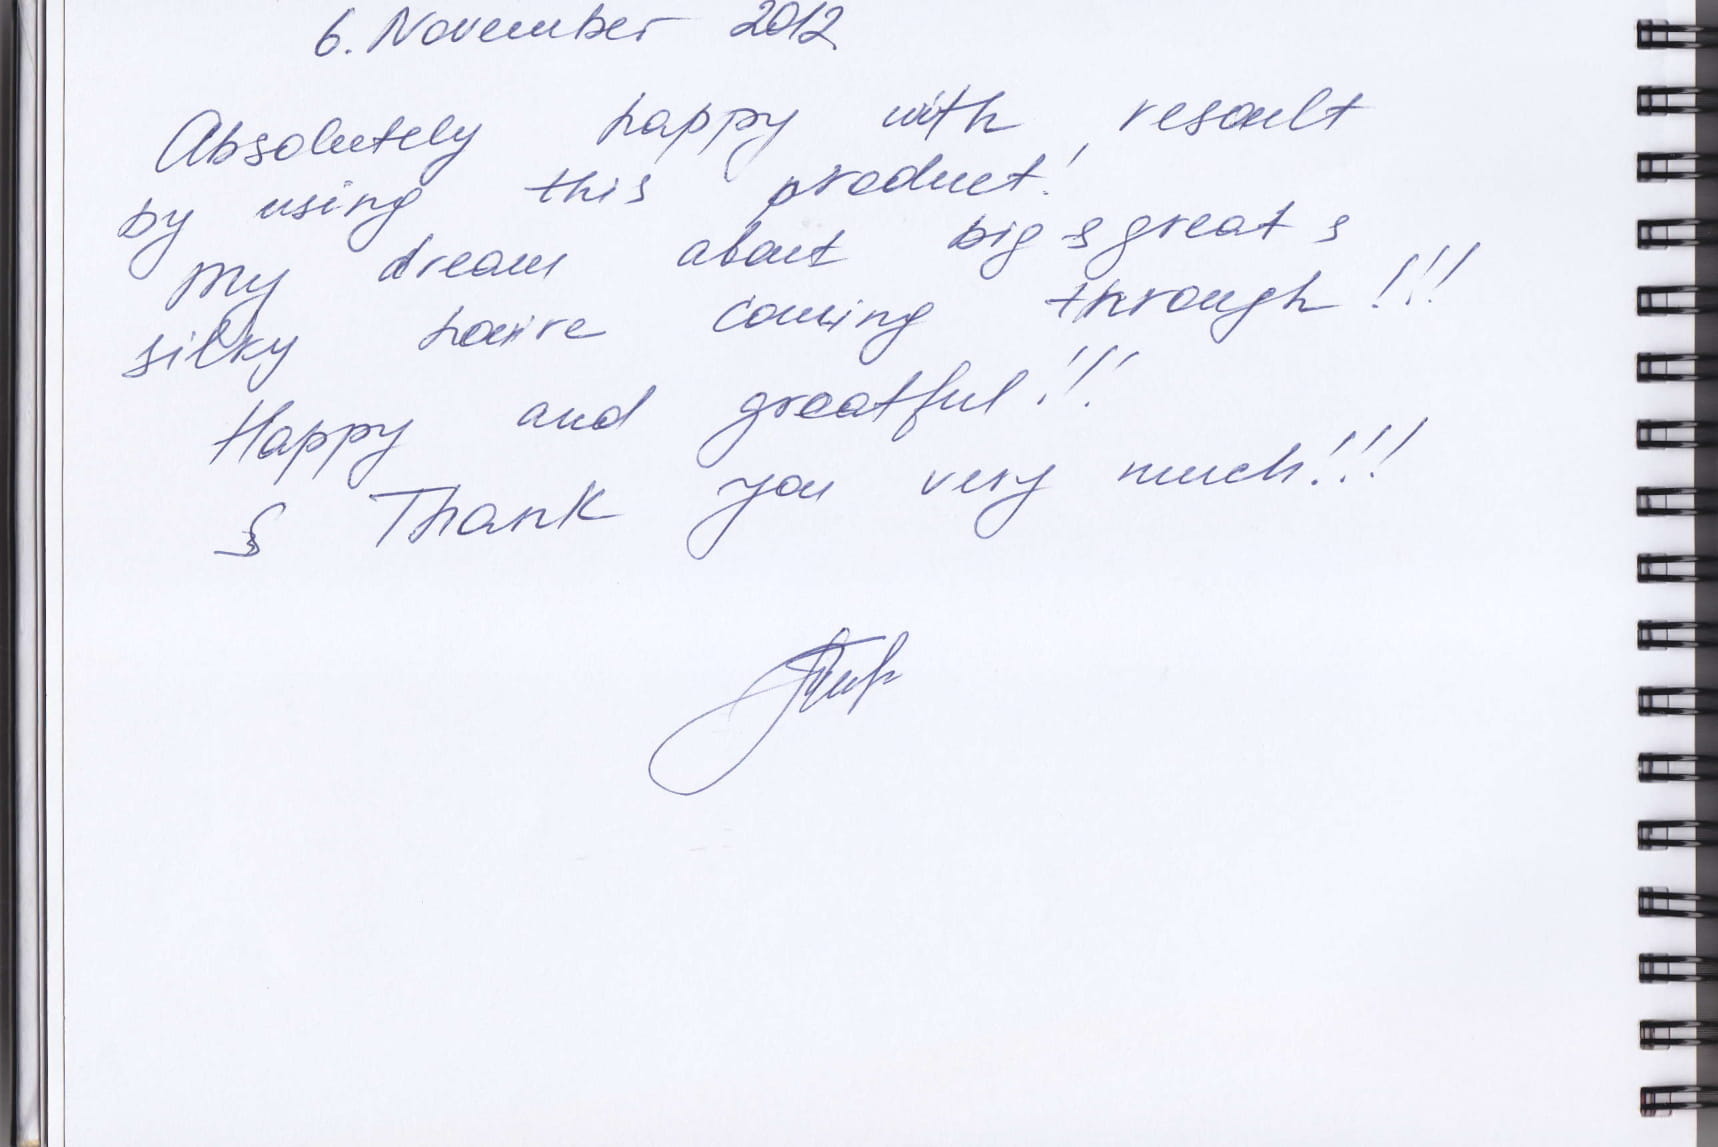 6. November 2012
Absolutely happy with resoult
by using this product!
My dream about big & great &
silky haire coming through!!!
Happy and greatful!!!
& Thank you very much!!!